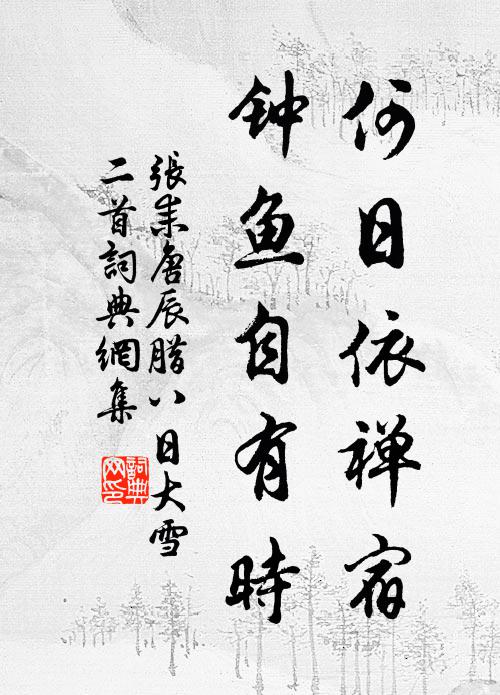 何日依禅宿
钟鱼自有時
張耒庚辰腊八日大雪
二首詞典網集
詞典
网印